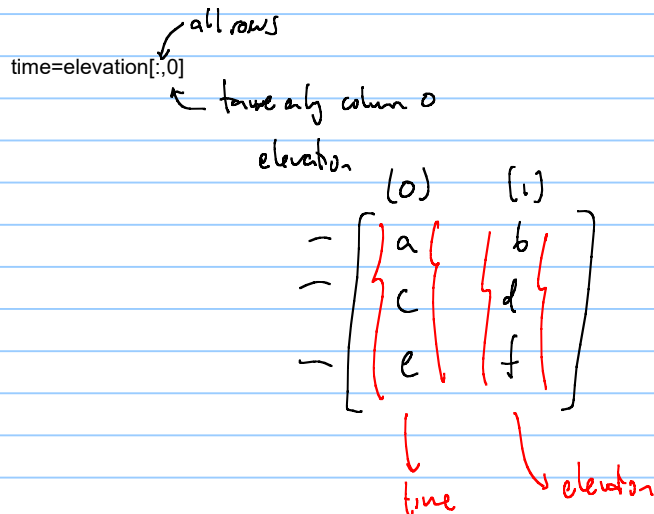 all rows
time=elevation[:,0]
only column 0
elevation
(0) (1)
a b
c d
e f
time elevation